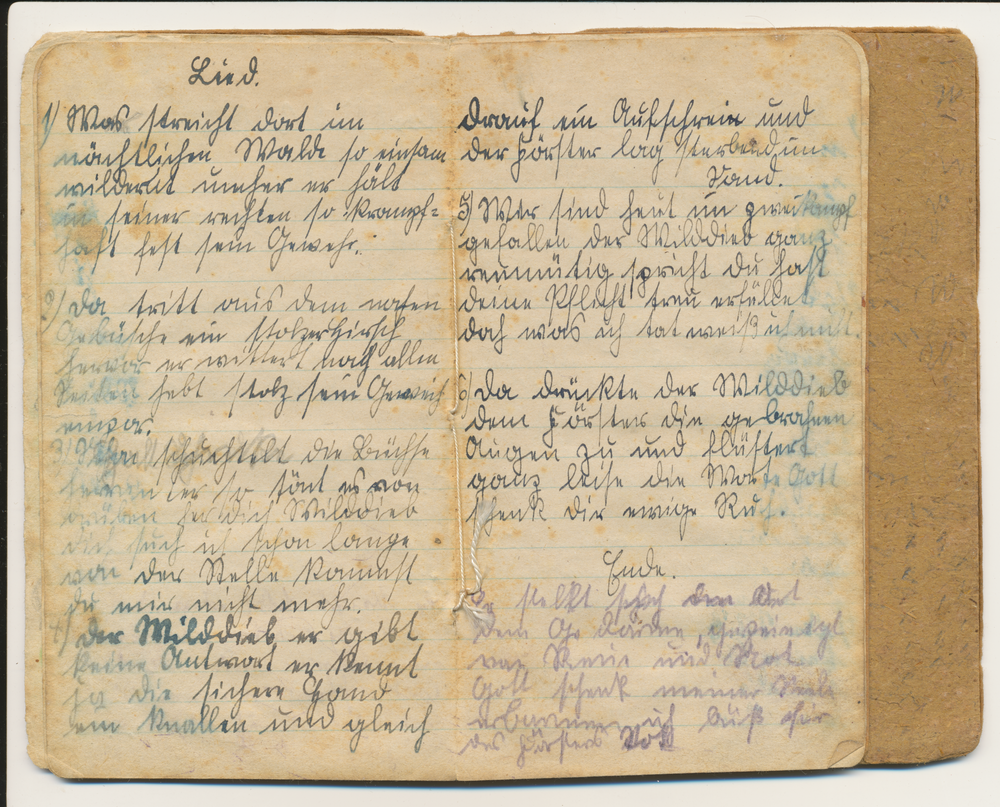 Lied.
1) Was streicht dort im
nächtlichen Walde so einsam
wildernt umher er hält
in seiner rechten so krampf=
haft fest sein Gewehr.
2) Da tritt aus dem nahen
Gebüsche ein stolzer Hirsch
hervor er wittert nach allen
Seiten hebt stolz sein Geweih
empor.
3) die Büchse
er so tönt es von
drüben her dich Wilddieb
dich such ich schon lange
von der Stelle kommst
du mir nicht mehr.
4) Der Wilddieb er gibt
keine Antwort er kennt
ja die sichere Hand
ein Knallen und gleich
drauf ein Aufschrein und
der Förster lag sterbend im
Sand.
5) Wir sind heut im zweikampf
gefallen der Wilddieb ganz
reumütig spricht du hast
deine Pflicht treu erfüllet
doch was ich tat weiß ich nicht.
6) Da drückte der Wilddieb
dem Förster die gebrochnen
Augen zu und flüstert
ganz leise die Worte Gott
schenk dir ewige Ruh.
Ende.
stellt sich
dem
von Reue und Not
Gott schenk meiner Seele
ich büß für
des Försters Tod